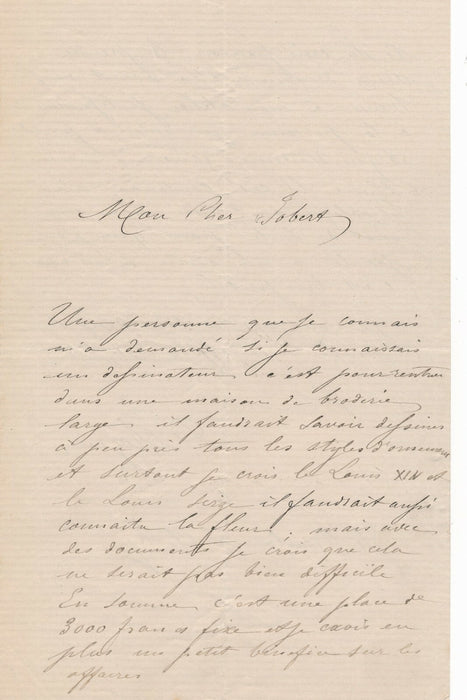 Mon Cher Jobert
Une personne que je connais
m'a demandé si je connaissais
un dessinateur c'est pour rentrer
dans une maison de broderie
large il faudrait savoir dessiner
à peu près tous les styles d'ornement
et surtout je crois le Louis XIII et
le Louis seize il faudrait aussi
connaitre la fleur ; mais avec
des documents je crois que cela
ne serait pas bien difficile
En somme c'est une place de
3000 francs fixe et je crois en
plus un petit bénéfice sur les
affaires